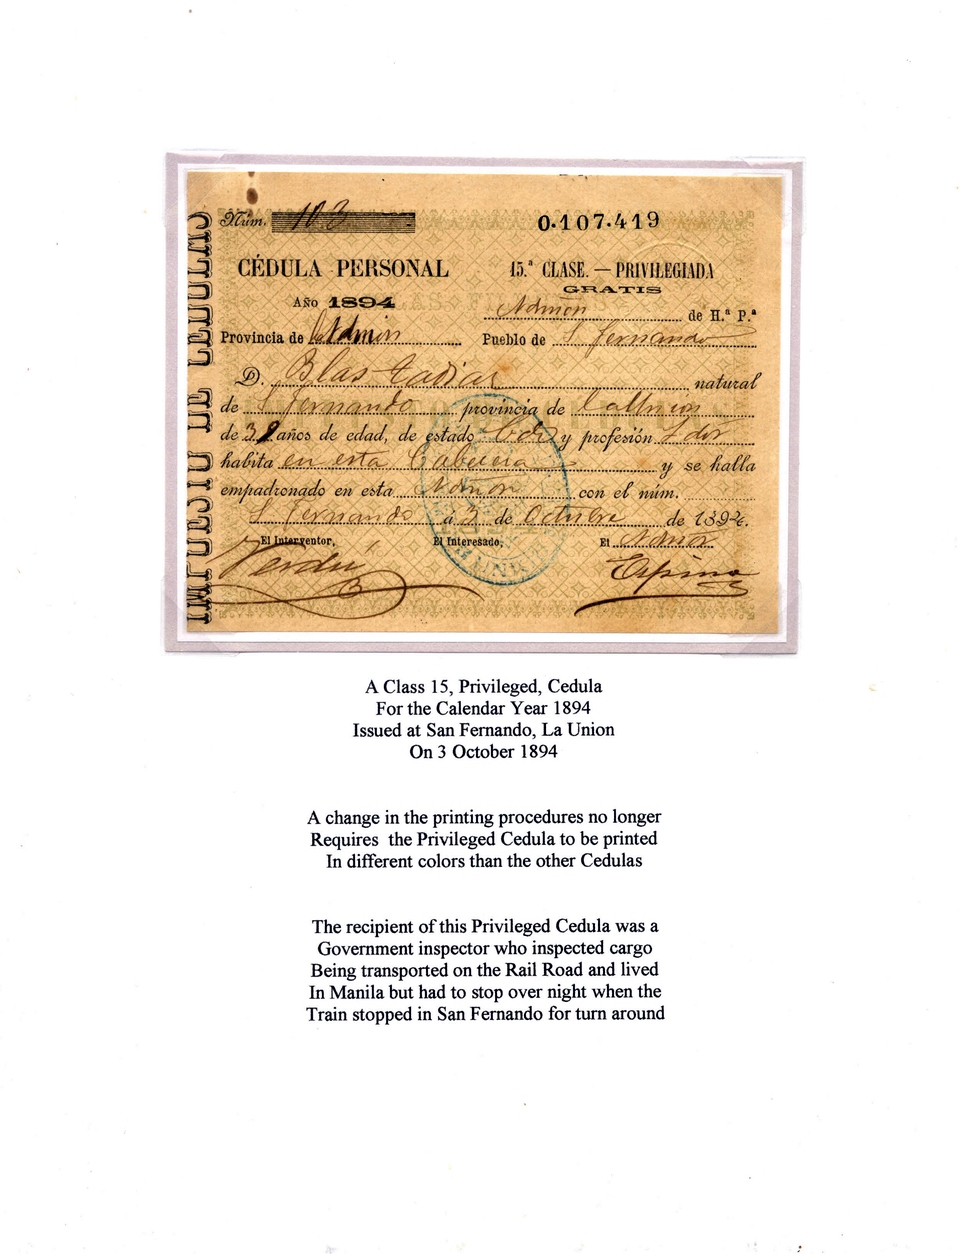 IMPUESTO DE CEDULAS
Núm. 103 0.107.419
CÉDULA PERSONAL 15.ª CLASE. — PRIVILEGIADA
GRATIS
Año 1894 Admon de H.ª P.ª
Provincia de Pueblo de S. Fernando
D. Blas natural
de S. Fernando provincia de
de años de edad, de estado y profesión
habita en esta Cabecera y se halla
empadronado en esta Admon con el núm.
S. Fernando á 3 de Octubre de 1894.
El Interventor, El Interesado, El Admor
A Class 15, Privileged, Cedula
For the Calendar Year 1894
Issued at San Fernando, La Union
On 3 October 1894
A change in the printing procedures no longer
Requires the Privileged Cedula to be printed
In different colors than the other Cedulas
The recipient of this Privileged Cedula was a
Government inspector who inspected cargo
Being transported on the Rail Road and lived
In Manila but had to stop over night when the
Train stopped in San Fernando for turn around